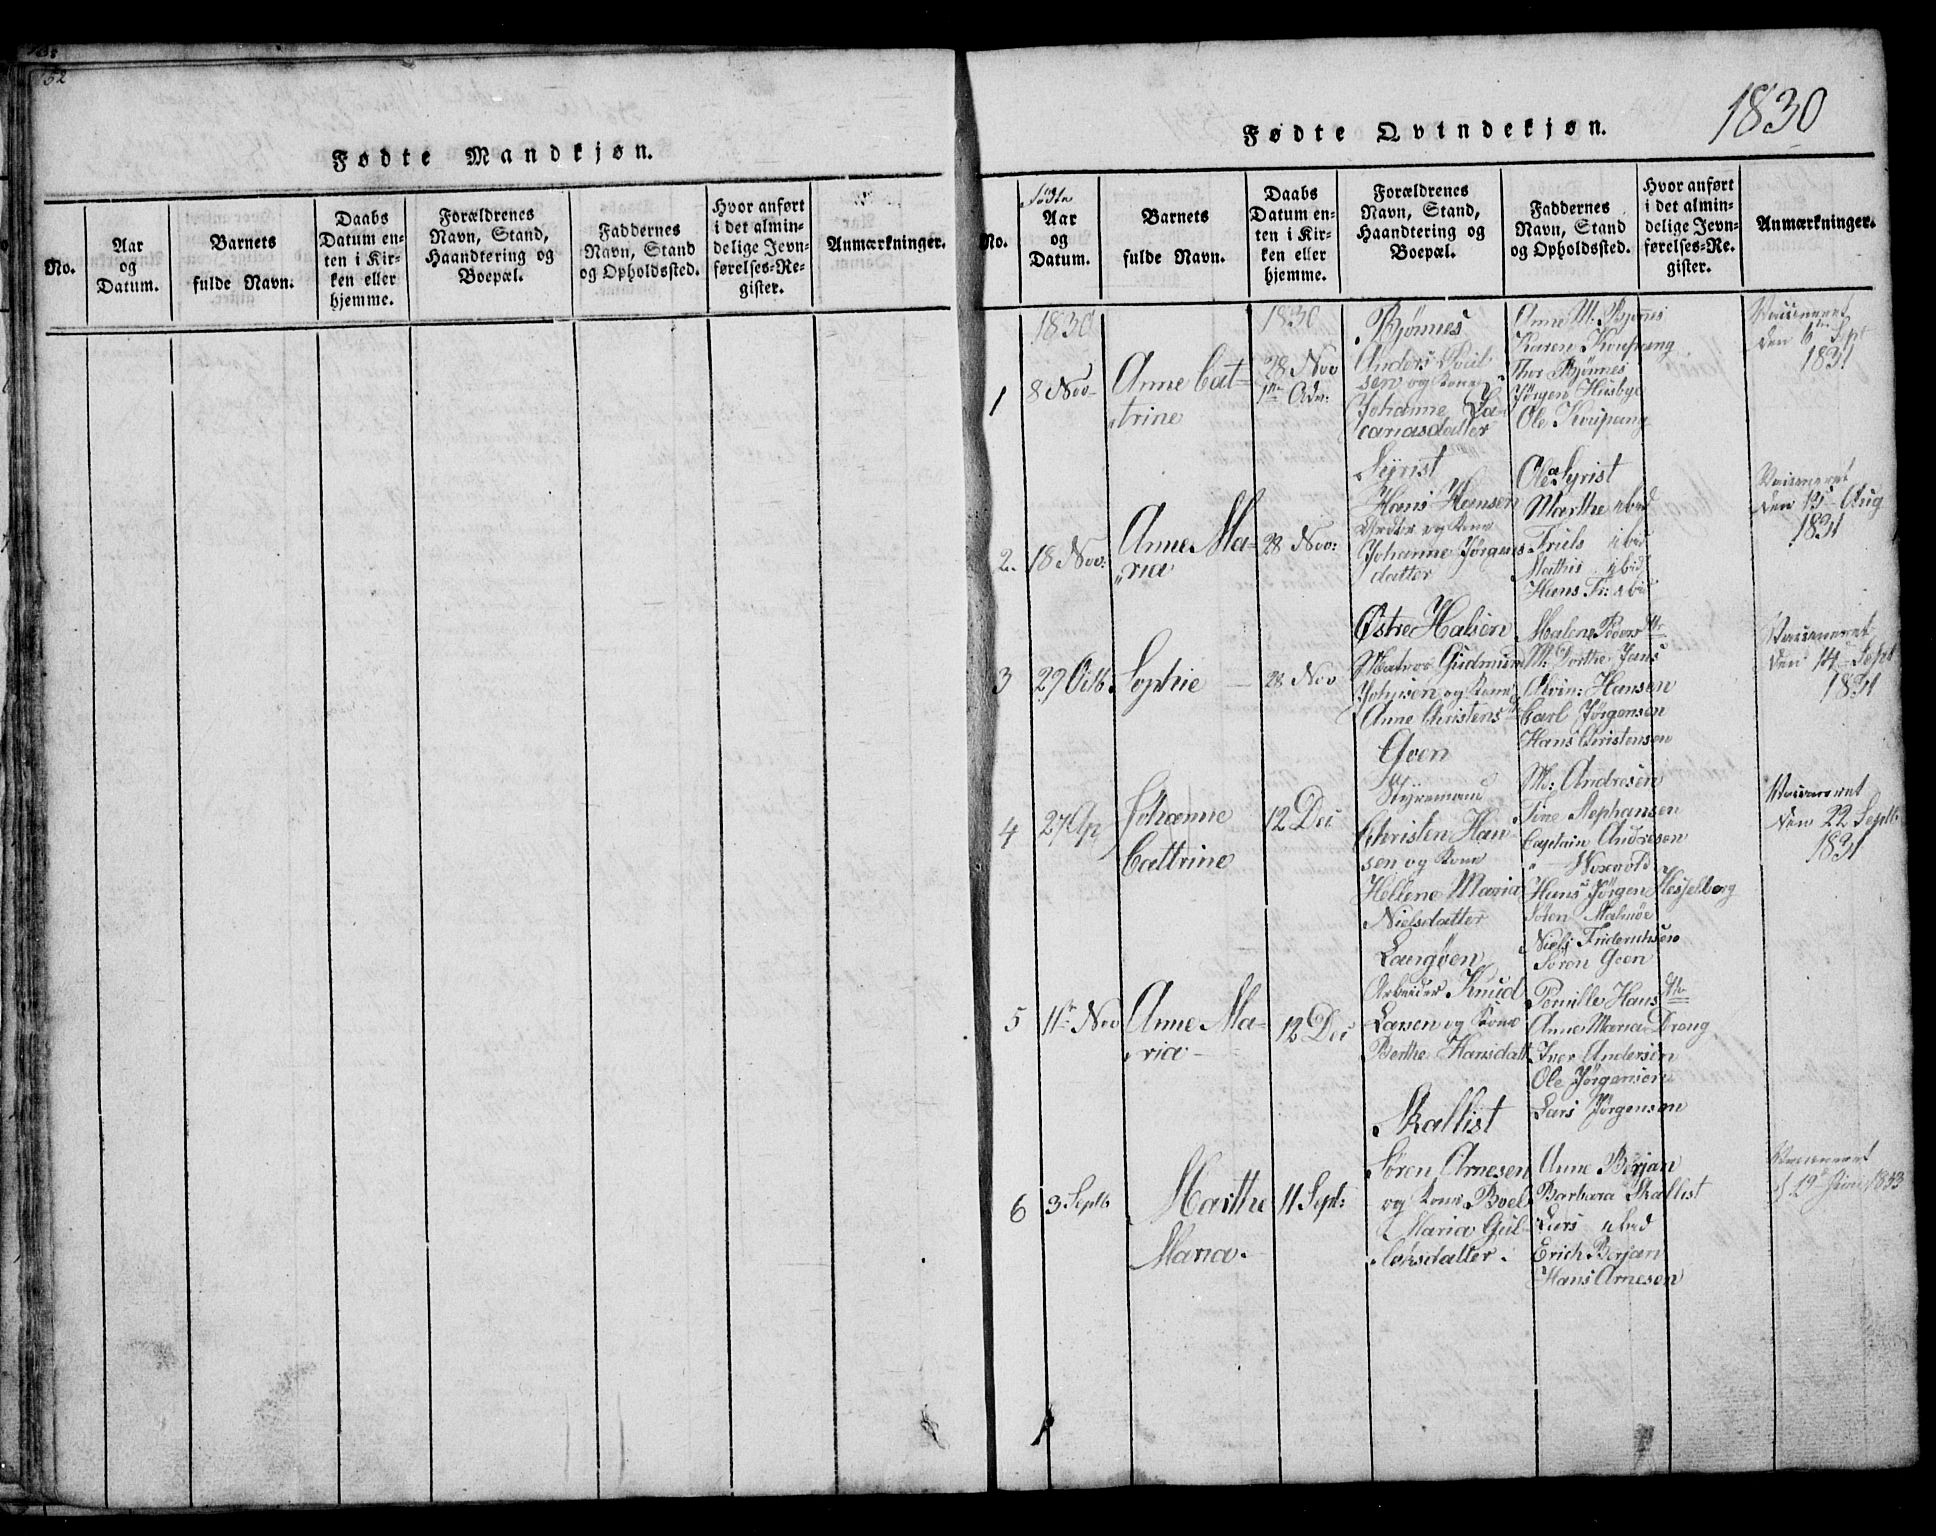 52
Fødte Mandkjøn.
No.
Aar
og
Datum.
Barnets
fulde Navn.
Daabs
Datum en-
ten i Kir-
ken eller
hjemme.
Forældrenes
Navn, Stand,
Haandtering og
Boepæl.
Faddernes
Navn, Stand
og Opholdssted.
Hvor anført
i det almin-
delige Jevn-
førelses-Re-
gister.
Anmærkninger.
1830
Fødte Qvindekjøn.
No.
Fødte
Aar
og
Datum.
Barnets
fulde Navn.
Daabs
Datum en-
ten i Kir-
ken eller
hjemme.
Forældrenes
Navn, Stand,
Haandtering og
Boepæl.
Faddernes
Navn, Stand
og Opholdssted.
Hvor anført
i det almin-
delige Jevn-
førelses-Re-
gister.
Anmærkninger.
1
1830
8 Nov
Anne Cat-
trine
1830
28 Nov
1ste Adv:
Bjønnes
Anders Poul
sen og Kone
Johanne Za-
cariasdatter
Anne M. Bjønnes
Karen Koupang
Thor Bjønnes
Jørgen Husbye
Ole Koupang
Vaccineret
den 6te Sept
1831
2.
18 Nov:
Anne Ma-
ria
28 Nov:
Hans Hansen
og Kone
Johanne Jørgens
datter
Ole
Marthe ibid
Friels ibid
Mathis ibid
Hans Fr: ibid
Vaccineret
den 15 Aug
1831
3
29 Octb.
Sophie
28 Nov
Østre Halsen
Matros Gudmund
Johnsen og Kone
Anne Christensd
Malene Peders Dtr
M: Dorthe Jans
Hansen
Carl Jørgensen
Hans Christensen
Vaccineret
den 14 Sept
1831
4
27
Johanne
Cattrine
12 Dec
Gven
Styremand
Christen Han-
sen og Kone
Hellene Maria
Nielsdatter
M: Andresen
Tine Stephansen
Captain Andresen
Hans Jørgen Hesselberg
Søren Malmøe
Niels Friderichsen
Søren Gven
Vaccineret
den 22 Septb.
1831
5
11te Nov
Anne Ma-
ria
12 Dec
Langøen
Arbeider Knud
Larsen og Kone
Berthe Hansdatt
Pernille Hans Dtr
Anne Maria Dreng
Iver Andersen
Ole Jørgensen
Lars Jørgensen
6
3 Septb
Marthe
Maria
11 Sept:
Skallist
Søren Arnesen
og Kone Boel
Maria Gul-
leksdatter
Anne Berjan
Barbara Skallist
Lars ibid
Erich Berjan
Hans Arnesen
Vaccineret
d 19 Juni 1833